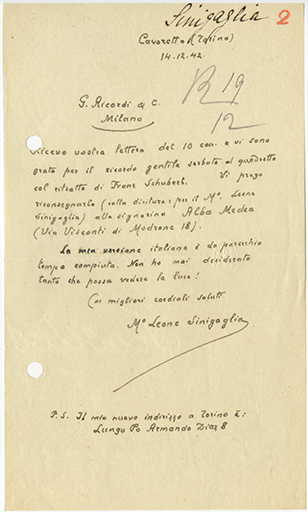 Sinigaglia 2
Cavoretto (Torino)
14.12.42
G. Ricordi & C.
Milano
R 19
12
Ricevo vostra lettera del 10 corr. e vi sono
grato per il ricordo gentile serbato al quadretto
col ritratto di Franz Schubert. Vi prego
riconsegnarlo (colla dicitura: per il M.º Leone
Sinigaglia) alla signorina Alba Medea
(Via Visconti di Modrone 18).
La mia versione italiana è da parecchio
tempo compiuta. Non ho mai desiderato
tanto che possa vedere la luce!
Coi migliori cordiali saluti
Mº Leone Sinigaglia
P.S. Il mio nuovo indirizzo a Torino è:
Lungo Po Armando Diaz 8